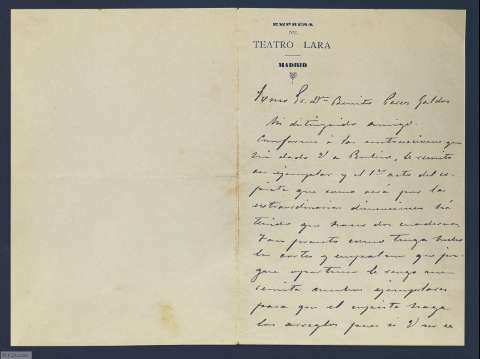 EMPRESA
DEL
TEATRO LARA
MADRID
Sr. Dn. Benito Perez Galdos
Mi distinguido amigo:
Conforme á las instrucciones que
dado V a le remito
un ejemplar y el 1er acto del
que como verá por las
extraordinarias dimensiones há
tenido que hacer dos cuadernos
Tan pronto como tenga hechos
los cortes y que juz-
gue oportunos le ruego me
remita ambos ejemplares
para que el copista haga
los arreglos pues si V no se